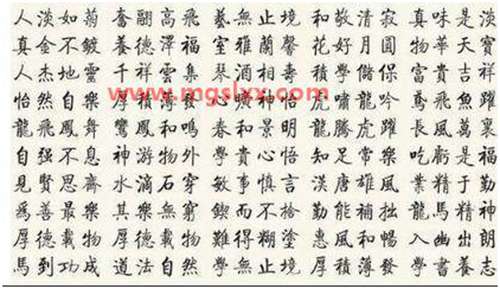 人淡如菊 奮翮高飛 藝無止境 和敬清寂 真味是淡
真金不鍍 養德澤福 室雅蘭馨 花好月圓 物華天寶
人杰地靈 千祥雲集 琴酒相壽 學儲 富貴吉祥
www.mgslxx.com
怡然自樂 厚積發 心曠神怡 虎嘯龍吟 鳶飛魚躍
龍飛鳳舞 鸞鳳和鳴 春和景明 龍騰虎躍 長風萬裏
自强不息 神游物外 和貴心悟 知足常樂 吃虧是福
見賢思齋 水滴石穿 敏事慎言 漢唐雄風 業精于勤
爲善最樂 其樂無窮 鍥而不捨 勤能補拙 龍馬精神
厚德載物 厚德載物 難得糊塗 惠風和暢 入幽出朗
馬到功成 道法自然 學無止境 厚積薄發 學書養志